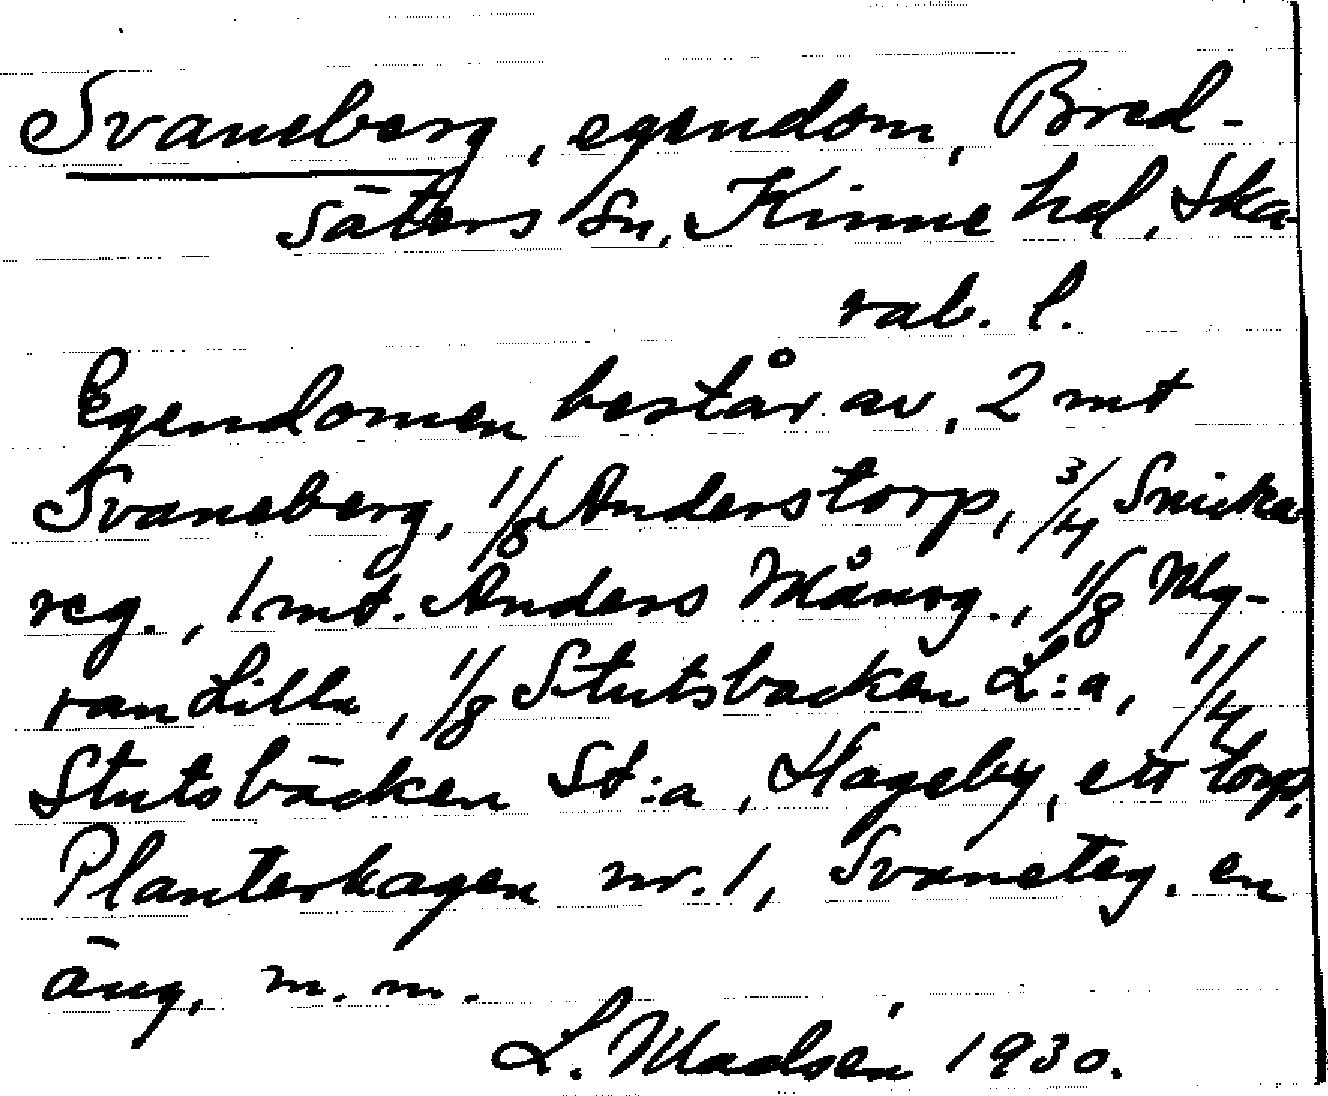 Svaneberg, egendom, Bred-
säters sn, Kinne hd, Ska-
rab. l.
Egendomen består av, 2 mt
Svaneberg, 1/8 Anderstorp, 3/4 Snicka-
reg., 1 mt. Anders Månsg., 1/8 My-
ran Lilla, 1/8 Stutsbäcken L:a, 1/4
Stutsbäcken St:a, Hageby, ett torp,
Planterhagen nr. 1, Svaneteg. en
äng, m. m.
L. Madsén 1930.